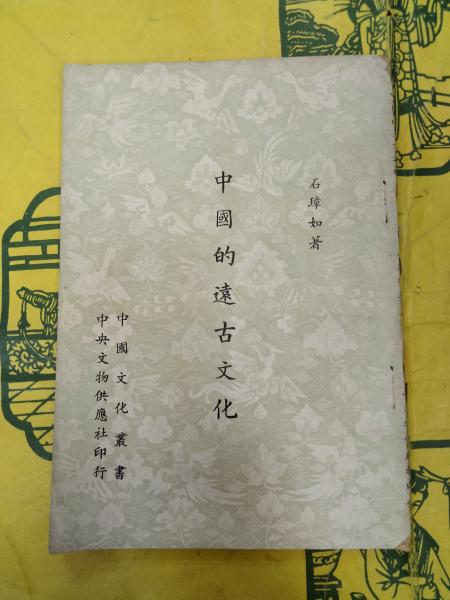 石璋如著
中國的遠古文化
中國文化叢書
中央文物供應社印行